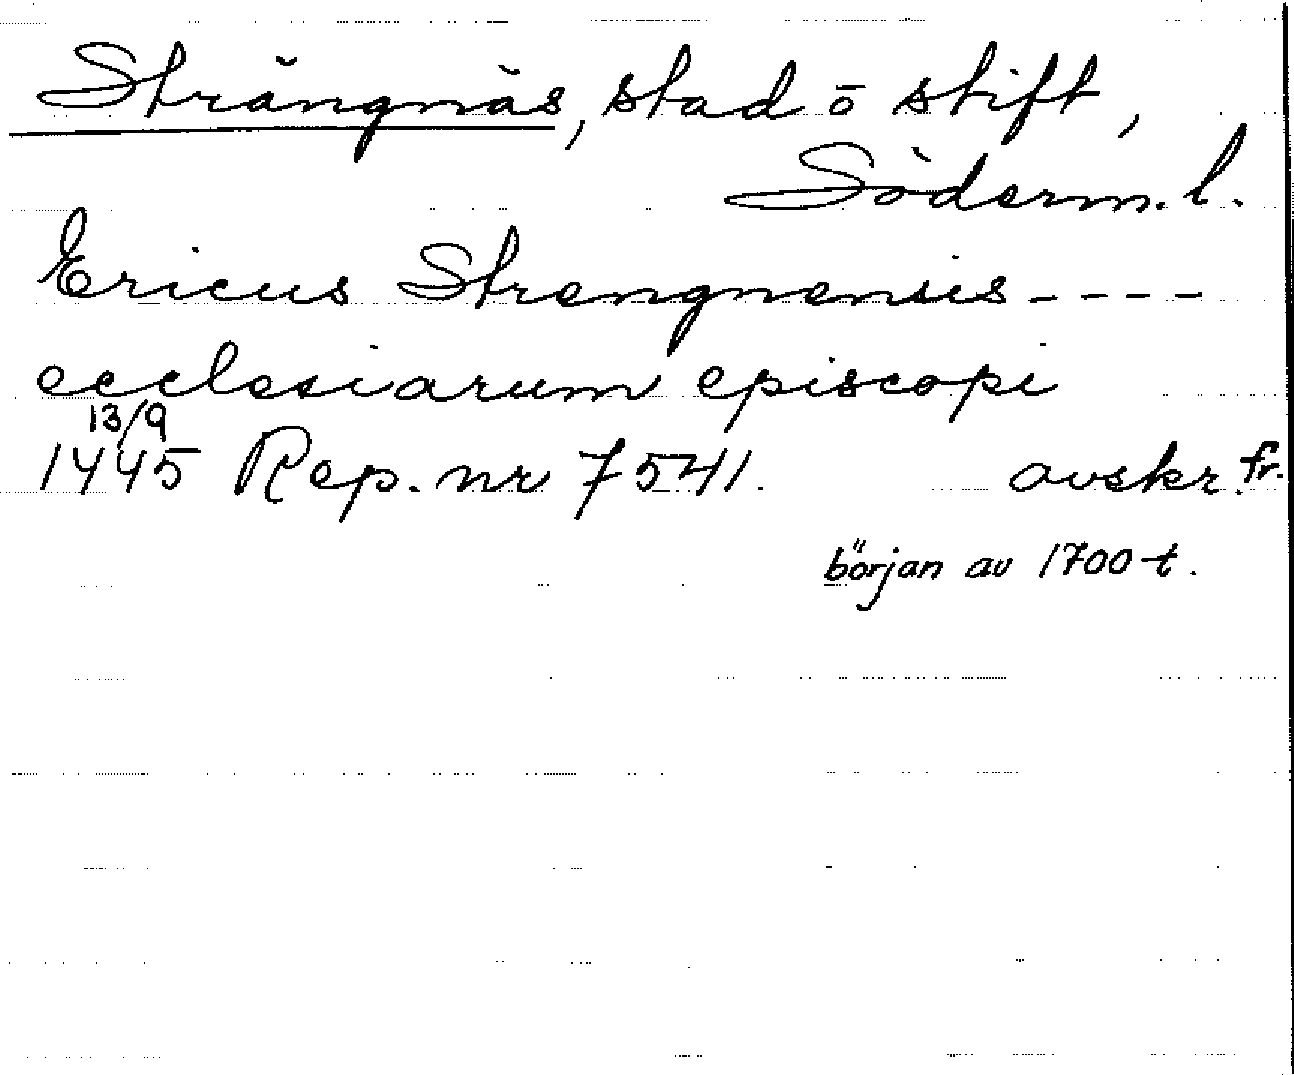 Strängnäs, stad o stift,
Söderm. l.
Ericus Strengnensis ----
ecclesiarum episcopi
13/9
1445 Rep. nr 7541. avskr. fr.
början av 1700-t.